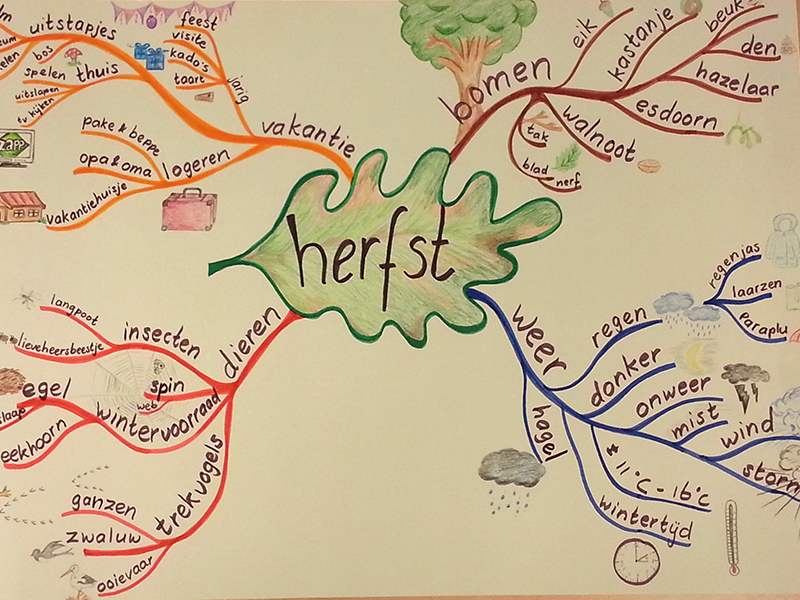 herfst
vakantie
uitstapjes
bos
thuis
spelen
uitslapen
tv kijken
jarig
feest
visite
kado's
taart
logeren
pake & beppe
opa & oma
vakantiehuisje
zapp
bomen
eik
kastanje
beuk
den
hazelaar
esdoorn
walnoot
tak
blad
nerf
weer
regen
regenjas
laarzen
paraplu
donker
onweer
mist
wind
storm
± 11°C - 16°C
wintertijd
hagel
dieren
insecten
langpoot
lieveheersbeestje
spin
web
wintervoorraad
egel
eekhoorn
trekvogels
ganzen
zwaluw
ooievaar